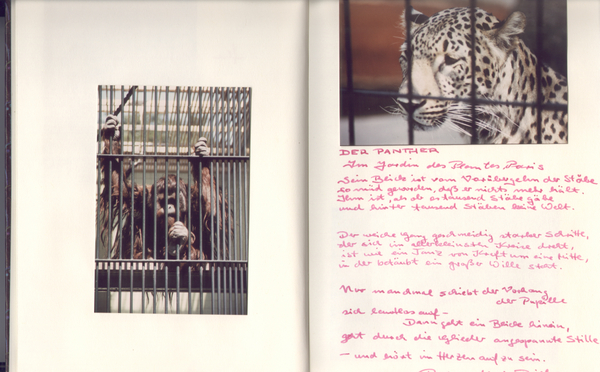 DER PANTHER
Im Jardin des Plantes Paris
Sein Blick ist vom Vorübergehn der Stäbe
so müd geworden, daß er nichts mehr hält.
Ihm ist, als ob es tausend Stäbe gäbe
und hinter tausend Stäben keine Welt.
Der weiche Gang geschmeidig starker Schritte,
der sich im allerkleinsten Kreise dreht,
ist wie ein Tanz von Kraft um eine Mitte,
in der betäubt ein großer Wille steht.
Nur manchmal schiebt der Vorhang
der Pupille
sich lautlos auf –
Dann geht ein Bild hinein,
geht durch der Glieder angespannte Stille
– und hört im Herzen auf zu sein.